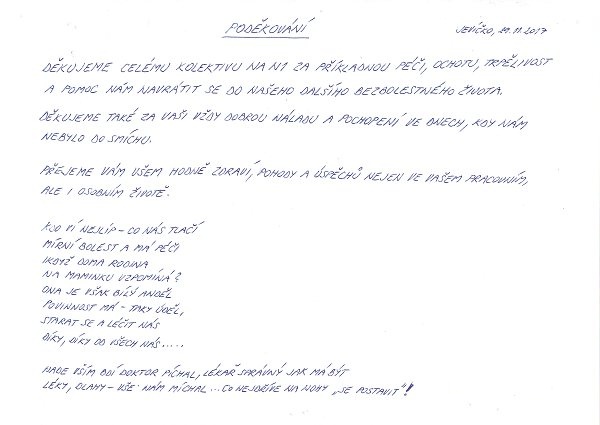 PODĚKOVÁNÍ
JEVÍČKO, 21.11.2017
DĚKUJEME CELÉMU KOLEKTIVU NA N1 ZA PŘÍKLADNOU PÉČI, OCHOTU, TRPĚLIVOST
A POMOC NÁM NAVRÁTIT SE DO NAŠEHO DALŠÍHO BEZBOLESTNÉHO ŽIVOTA.
DĚKUJEME TAKÉ ZA VAŠI VŽDY DOBROU NÁLADU A POCHOPENÍ VE DNECH, KDY NÁM
NEBYLO DO SMÍCHU.
PŘEJEME VÁM VŠEM HODNĚ ZDRAVÍ, POHODY A ÚSPĚCHŮ NEJEN VE VAŠEM PRACOVNÍM,
ALE I OSOBNÍM ŽIVOTĚ.
KDO VÍ NEJLÍP - CO NÁS TLAČÍ
MÍRNÍ BOLEST A MÁ PÉČI
IKDYŽ DOMA RODINA
NA MAMINKU VZPOMÍNÁ?
ONA JE VŠAK BÍLÝ ANDĚL
POVINNOST MÁ - TAKY ÚDĚL,
STARAT SE A LÉČIT NÁS
DÍKY, DÍKY OD VŠECH NÁS.....
NADE VŠÍM BDÍ DOKTOR PÍCHAL, LÉKAŘ SPRÁVNÝ JAK MÁ BÝT
LÉKY, DLAHY - VŠE NÁM MÍCHAL... CO NEJDŘÍVE NA NOHY „SE POSTAVIT"!